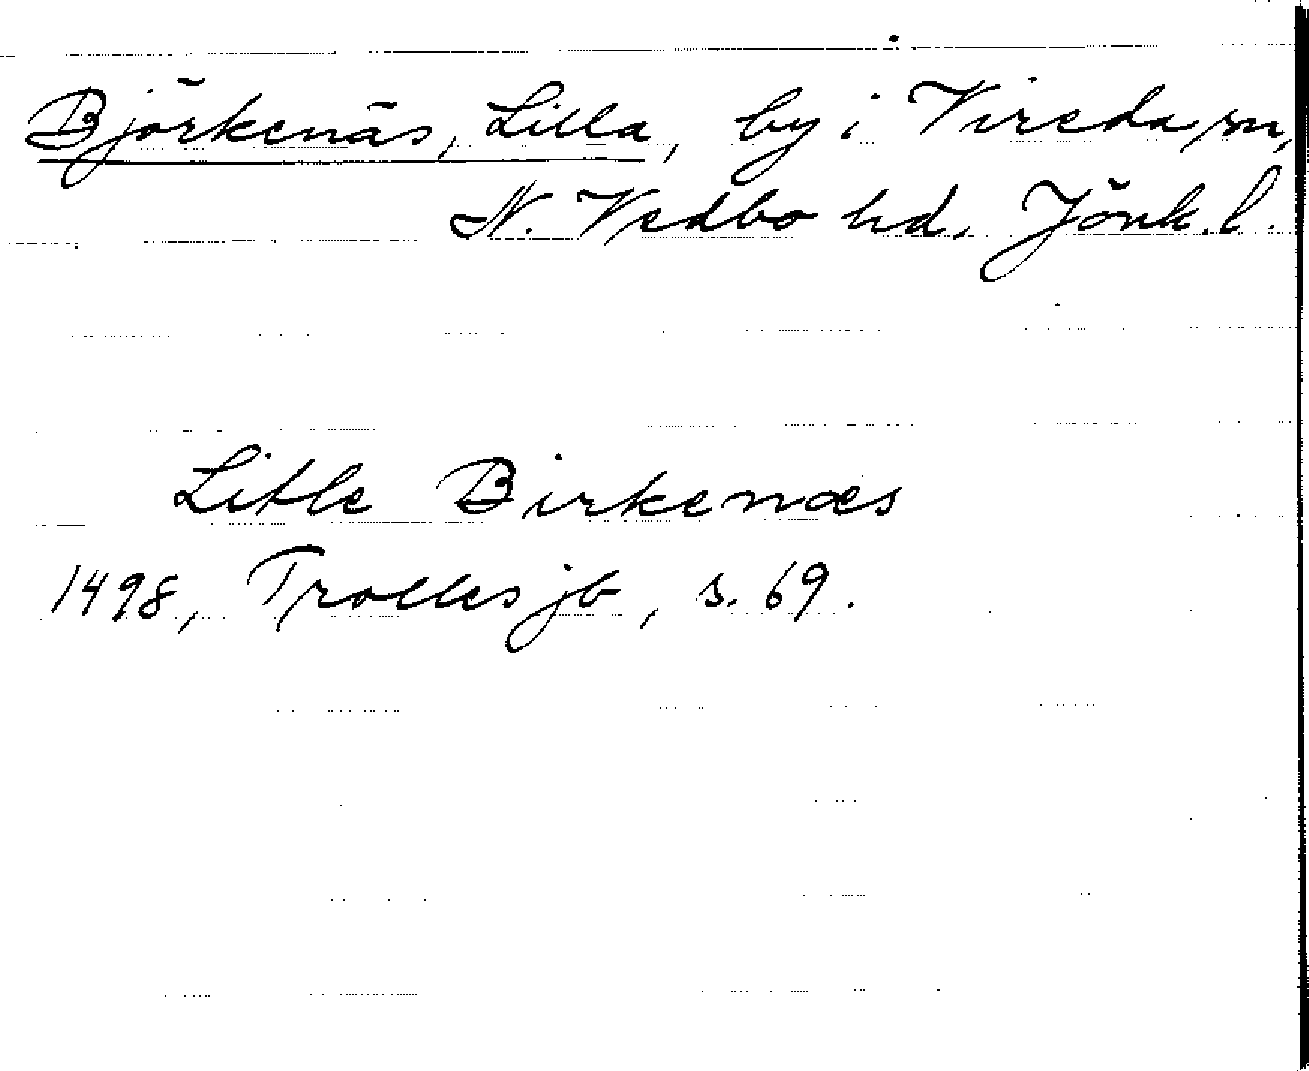 Björkenäs, Lilla, by i Vireda sn,
N. Vedbo hd. Jönk. l.
Litle Birkenæs
1498, Trolles jb, s. 69.